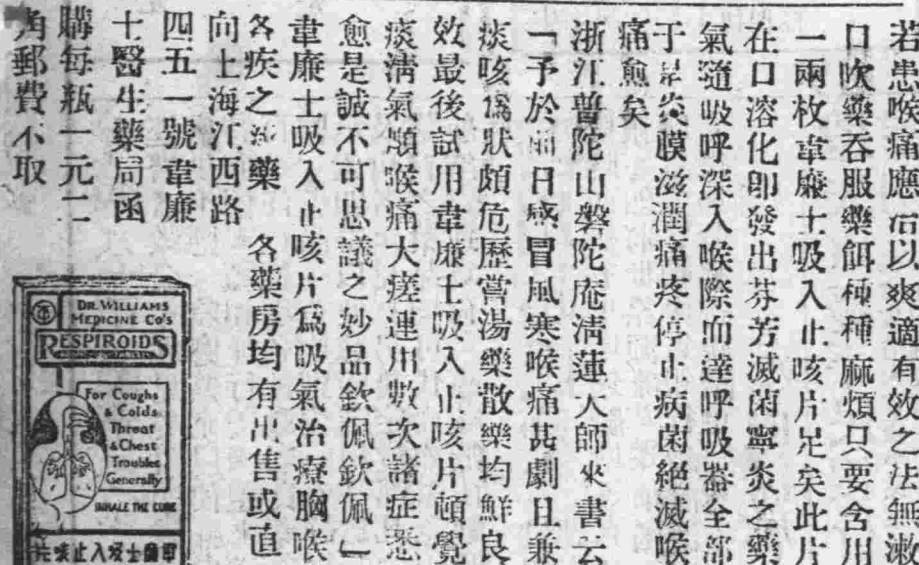 若患喉痛應以爽適有效之法無漱
口吹藥吞服藥餌種種麻煩只要含用
一兩枚韋廉士吸入止咳片足矣此片
在口溶化卽發出芬芳滅菌寧炎之藥
氣隨吸呼深入喉際而達呼吸器全部
于是炎膜滋潤痛疼停止病菌絕滅喉
痛愈矣
浙江普陀山磐陀庵清蓮大師來書云
「予於前日感冒風寒喉痛甚劇且兼
痰咳爲狀頗危歷嘗湯藥散藥均鮮良
效最後試用韋廉士吸入止咳片頓覺
痰淸氣順喉痛大瘥連用數次諸症悉
愈是誠不可思議之妙品欽佩欽佩」
韋廉士吸入止咳片爲吸氣治療胸喉
各疾之藥 各藥房均有出售或直
向上海江西路
四五一號韋廉
士醫生藥局函
購每瓶一元二
角郵費不取
DR. WILLIAMS
MEDICINE Co's
RESPIROIDS
For Coughs
& Colds
Throat
& Chest
Troubles
Generally
INHALE THE CURE
片咳止入吸士廉韋